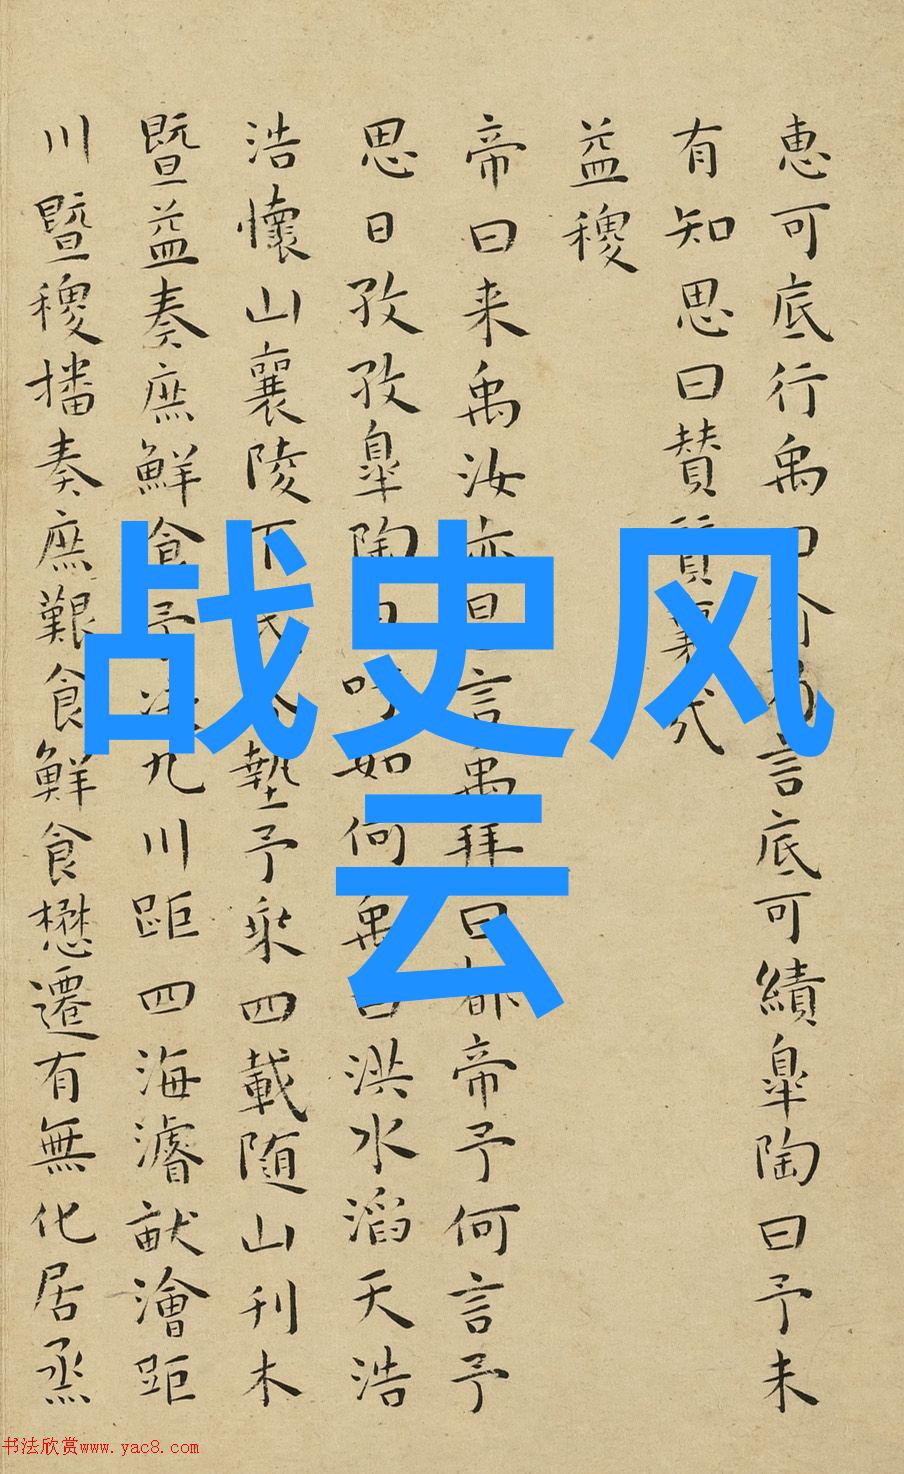 恵可底行禹曰乃言底可績皐陶曰予未
有知思曰賛
益稷
帝曰来禹汝亦言禹拜曰都帝予何言予
思日孜孜皐陶如何禹曰洪水滔天浩
浩懷山襄陵下墊予乘四載随山刊木
暨益奏庶鮮食予九川距四海濬畎澮距
川暨稷播奏庶艱食鮮食懋遷有無化居烝
战史风
云
书法欣赏www.yac8.com